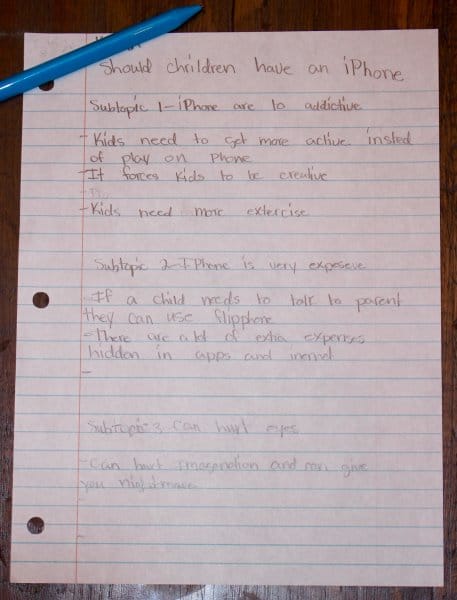 Should chrildren have an iPhone
Subtopic 1-iPhone are to addictive
- Kids need to get more active insted
of play on Phone
-It forces kids to be creative
-Kids need more extercise
Subtopic 2-IPhone is very expeseve
-If a child needs to talk to parent
they can use flipphone
-There are a lot of extra expenses
hidden in apps and
-
Subtopic-3 Can hurt eyes
-Can hurt Imagenation and can give
you nightmare